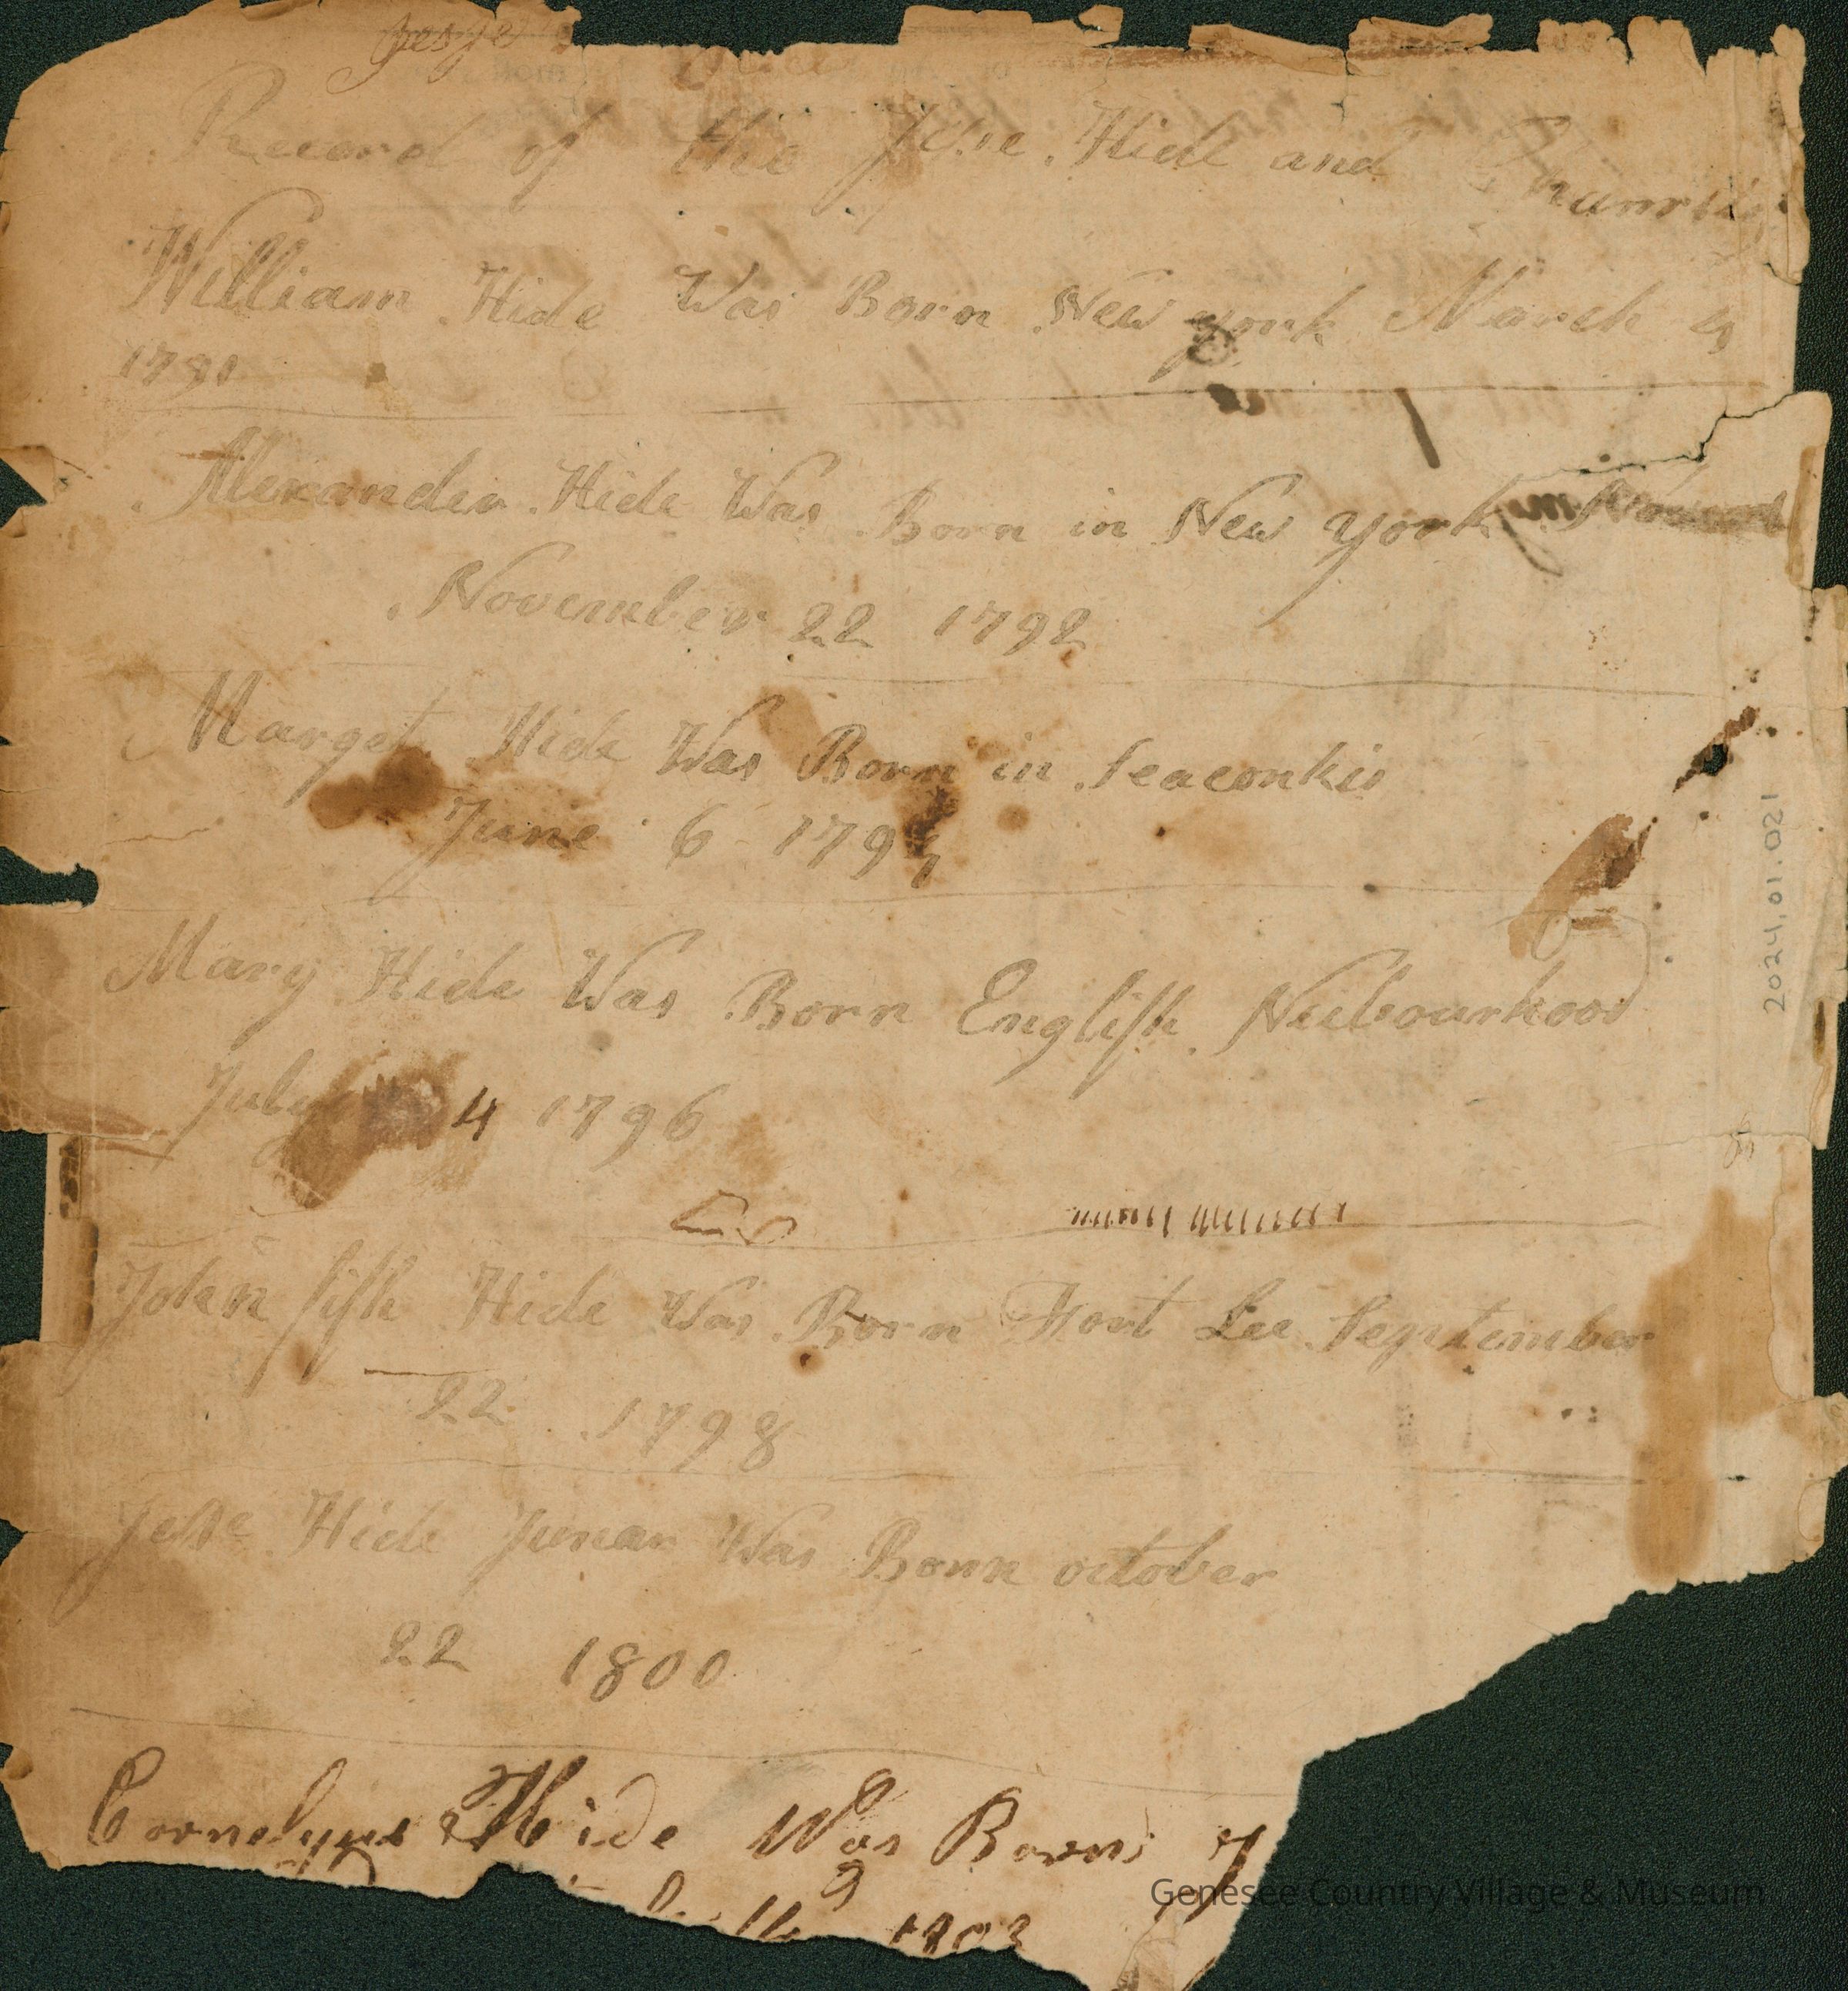 Record of the Jesse Hide and
William Hide Was Born New york March 4
1791
Alexander Hide Was Born in New york
November 22 1792
Marget Hide Was Born in Seaconkis
June 6 1794
Mary Hide Was Born English Neibourhood
July 4 1796
John fish Hide Was Born Fort Lee September
22 1798
Jesse Hide Junear Was Born october
22 1800
Cornelyus Hide Was Born
1803
2024.01.021
Genesee Country Village & Museum